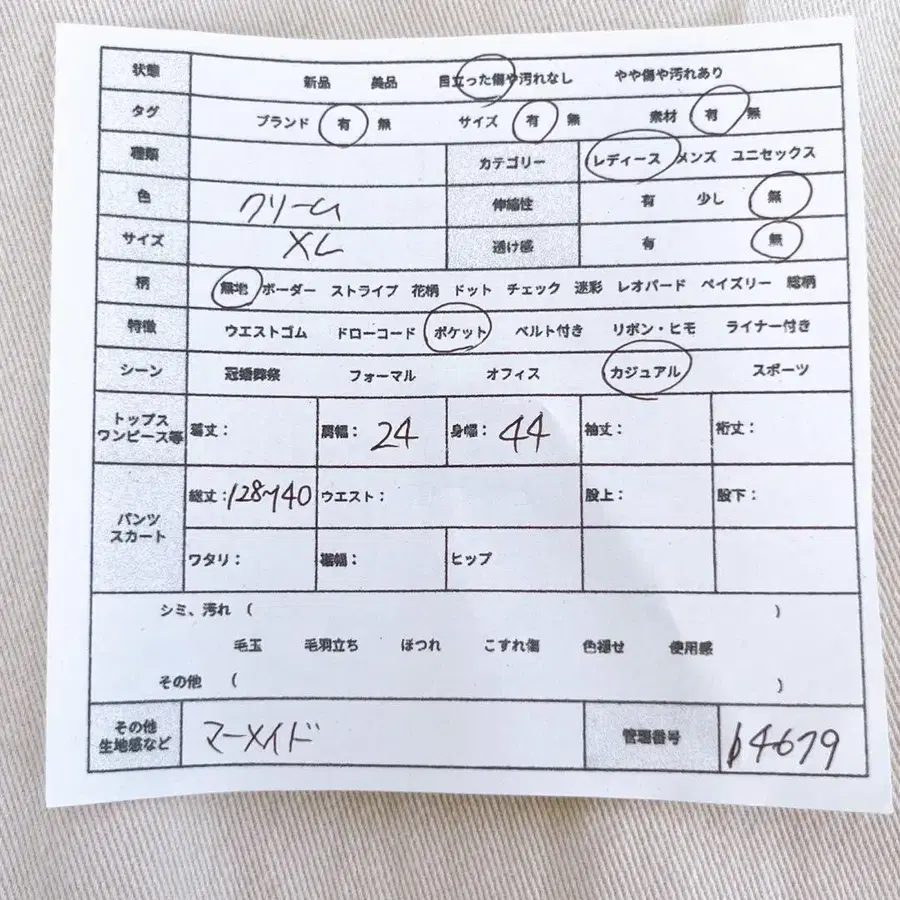 状態 新品 美品 目立った傷や汚れなし やや傷や汚れあり
タグ ブランド 有 無 サイズ 有 無 素材 有 無
種類 カテゴリー レディース メンズ ユニセックス
色 クリーム 伸縮性 有 少し 無
サイズ XL 透け感 有 無
柄 無地 ボーダー ストライプ 花柄 ドット チェック 迷彩 レオパード ペイズリー 総柄
特徴 ウエストゴム ドローコード ポケット ベルト付き リボン・ヒモ ライナー付き
シーン 冠婚葬祭 フォーマル オフィス カジュアル スポーツ
トップス
ワンピース等 着丈: 肩幅: 24 身幅: 44 袖丈: 裄丈:
パンツ
スカート
総丈:128~140 ウエスト: 股上: 股下:
ワタリ: 裾幅: ヒップ
シミ、汚れ ( )
毛玉 毛羽立ち ほつれ こすれ傷 色褪せ 使用感
その他 ( )
その他
生地感など マーメイド 管理番号 b4679